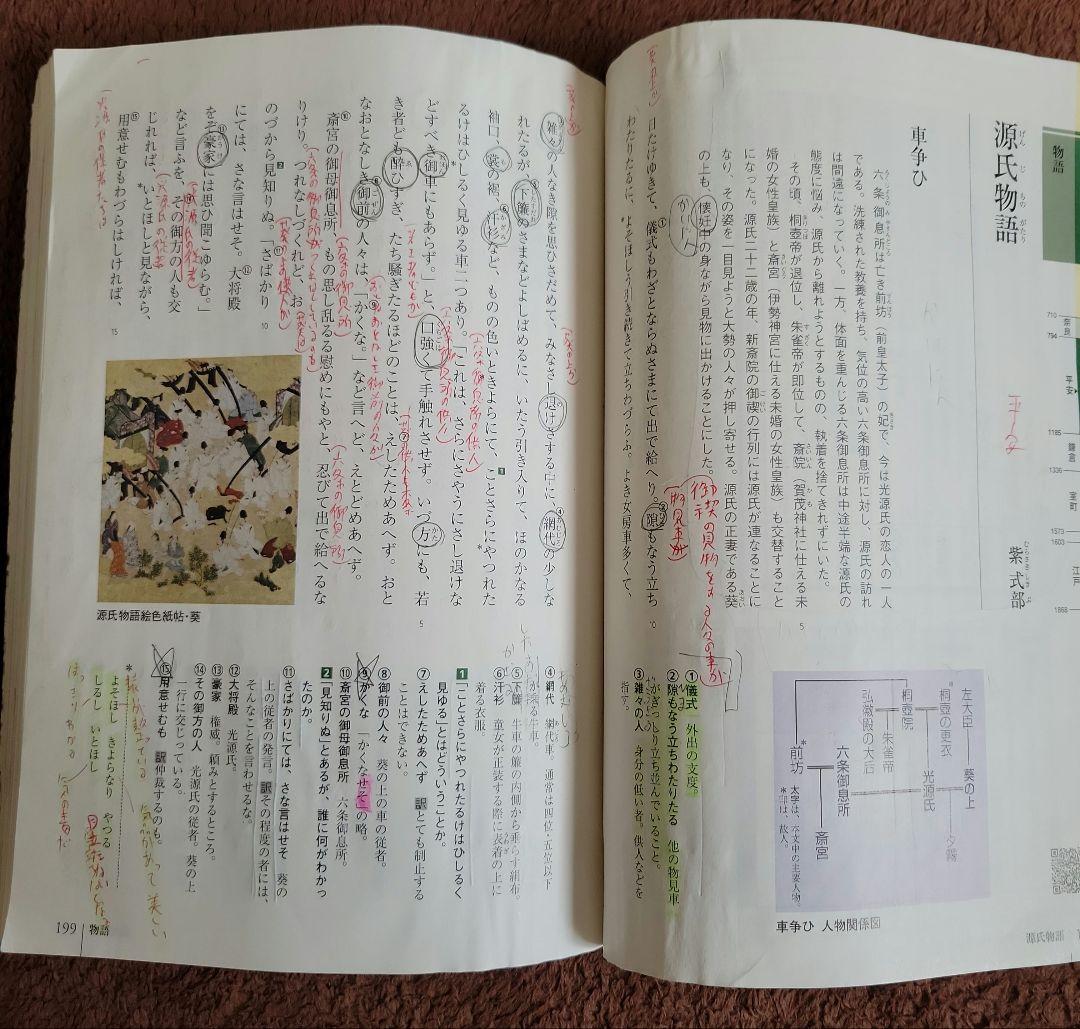 物語
源氏物語
げんじものがたり
紫式部
むらさきしきぶ
車争ひ
六条御息所は亡き前坊（前皇太子）の妃で、今は光源氏の恋人の一人
である。洗練された教養を持ち、気位の高い六条御息所に対し、源氏の訪れ
は間遠になっていく。一方、体面を重んじる六条御息所は中途半端な源氏の
態度に悩み、源氏から離れようとするものの、執着を捨てきれずにいた。
その頃、桐壺帝が退位し、朱雀帝が即位して、斎院（賀茂神社に仕える未
婚の女性皇族）と斎宮（伊勢神宮に仕える未婚の女性皇族）も交替すること
になった。源氏二十二歳の年、新斎院の御禊の行列には源氏が連なることに
なり、その姿を一目見ようと大勢の人々が押し寄せる。源氏の正妻である葵
の上も、懐妊中の身ながら見物に出かけることにした。
かいにん
御禊の見物をする人々の車が
物見車が
日たけゆきて、①儀式もわざとならぬさまにて出で給へり。②隙もなう立ち
わたりたるに、*よそほしう引き続きて立ちわづらふ。よき女房車多くて、
5
10
710
奈良
794
平安
1185
鎌倉
1336
室町
1573
1603
江戸
1868
左大臣
葵の上
夕霧
桐壺の更衣
光源氏
桐壺院
朱雀帝
弘徽殿の大后
六条御息所
斎宮
*前坊
太字は、本文中の主要人物。
*印は、故人。
車争ひ 人物関係図
源氏物語
①儀式 外出の支度。
②隙もなう立ちわたりたる 他の物見車
がぎっしり立ち並んでいること。
③雑々の人 身分の低い者。供人などを
指す。
③雑々の人なき隙を思ひさだめて、みなさし退けさする中に、④網代の少しな
れたるが、⑤下簾のさまなどよしばめるに、いたう引き入りて、ほのかなる
袖口、裳の裾、⑥汗衫など、ものの色いときよらにて、ことさらにやつれた
るけはひしるく見ゆる車二つあり。「これは、さらにさやうにさし退けな
どすべき御車にもあらず。」と、口強くて手触れさせず。いづ方にも、若
き者ども酔ひすぎ、たち騒ぎたるほどのことは、⑦えしたためあへず。おと
なおとなしき⑧御前の人々は、「⑨かくな。」など言へど、えとどめあへず。
⑩斎宮の御母御息所、もの思し乱るる慰めにもやと、忍びて出で給へるな
りけり。つれなしづくれど、お
のづから見知りぬ。「⑪さばかり
にては、さな言はせそ。⑫大将殿
をぞ⑬豪家には思ひ聞こゆらむ。」
など言ふを、⑭その御方の人も交
じれれば、*いとほしと見ながら、
⑮用意せむもわづらはしければ、
5
10
15
源氏物語絵色紙帖・葵
④網代 網代車。通常は四位・五位以下
が乗る牛車。
⑤下簾 牛車の簾の内側から垂らす絹布。
⑥汗衫 童女が正装する際に表着の上に
着る衣服。
1 「ことさらにやつれたるけはひしるく
見ゆる」とはどういうことか。
⑦えしたためあへず 訳とても制止する
ことはできない。
⑧御前の人々 葵の上の車の従者。
⑨かくな 「かくなせそ」の略。
⑩斎宮の御母御息所 六条御息所。
2 「見知りぬ」とあるが、誰に何がわかっ
たのか。
⑪さばかりにては、さな言はせそ 葵の
上の従者の発言。訳その程度の者には、
そんなことを言わせるな。
⑫大将殿 光源氏。
⑬豪家 権威。頼みとするところ。
⑭その御方の人 光源氏の従者。葵の上
一行に交じっている。
⑮用意せむも 訳仲裁するのも。
*
よそほし きよらなり やつる
しるし いとほし
はっきりわかる
199
物語